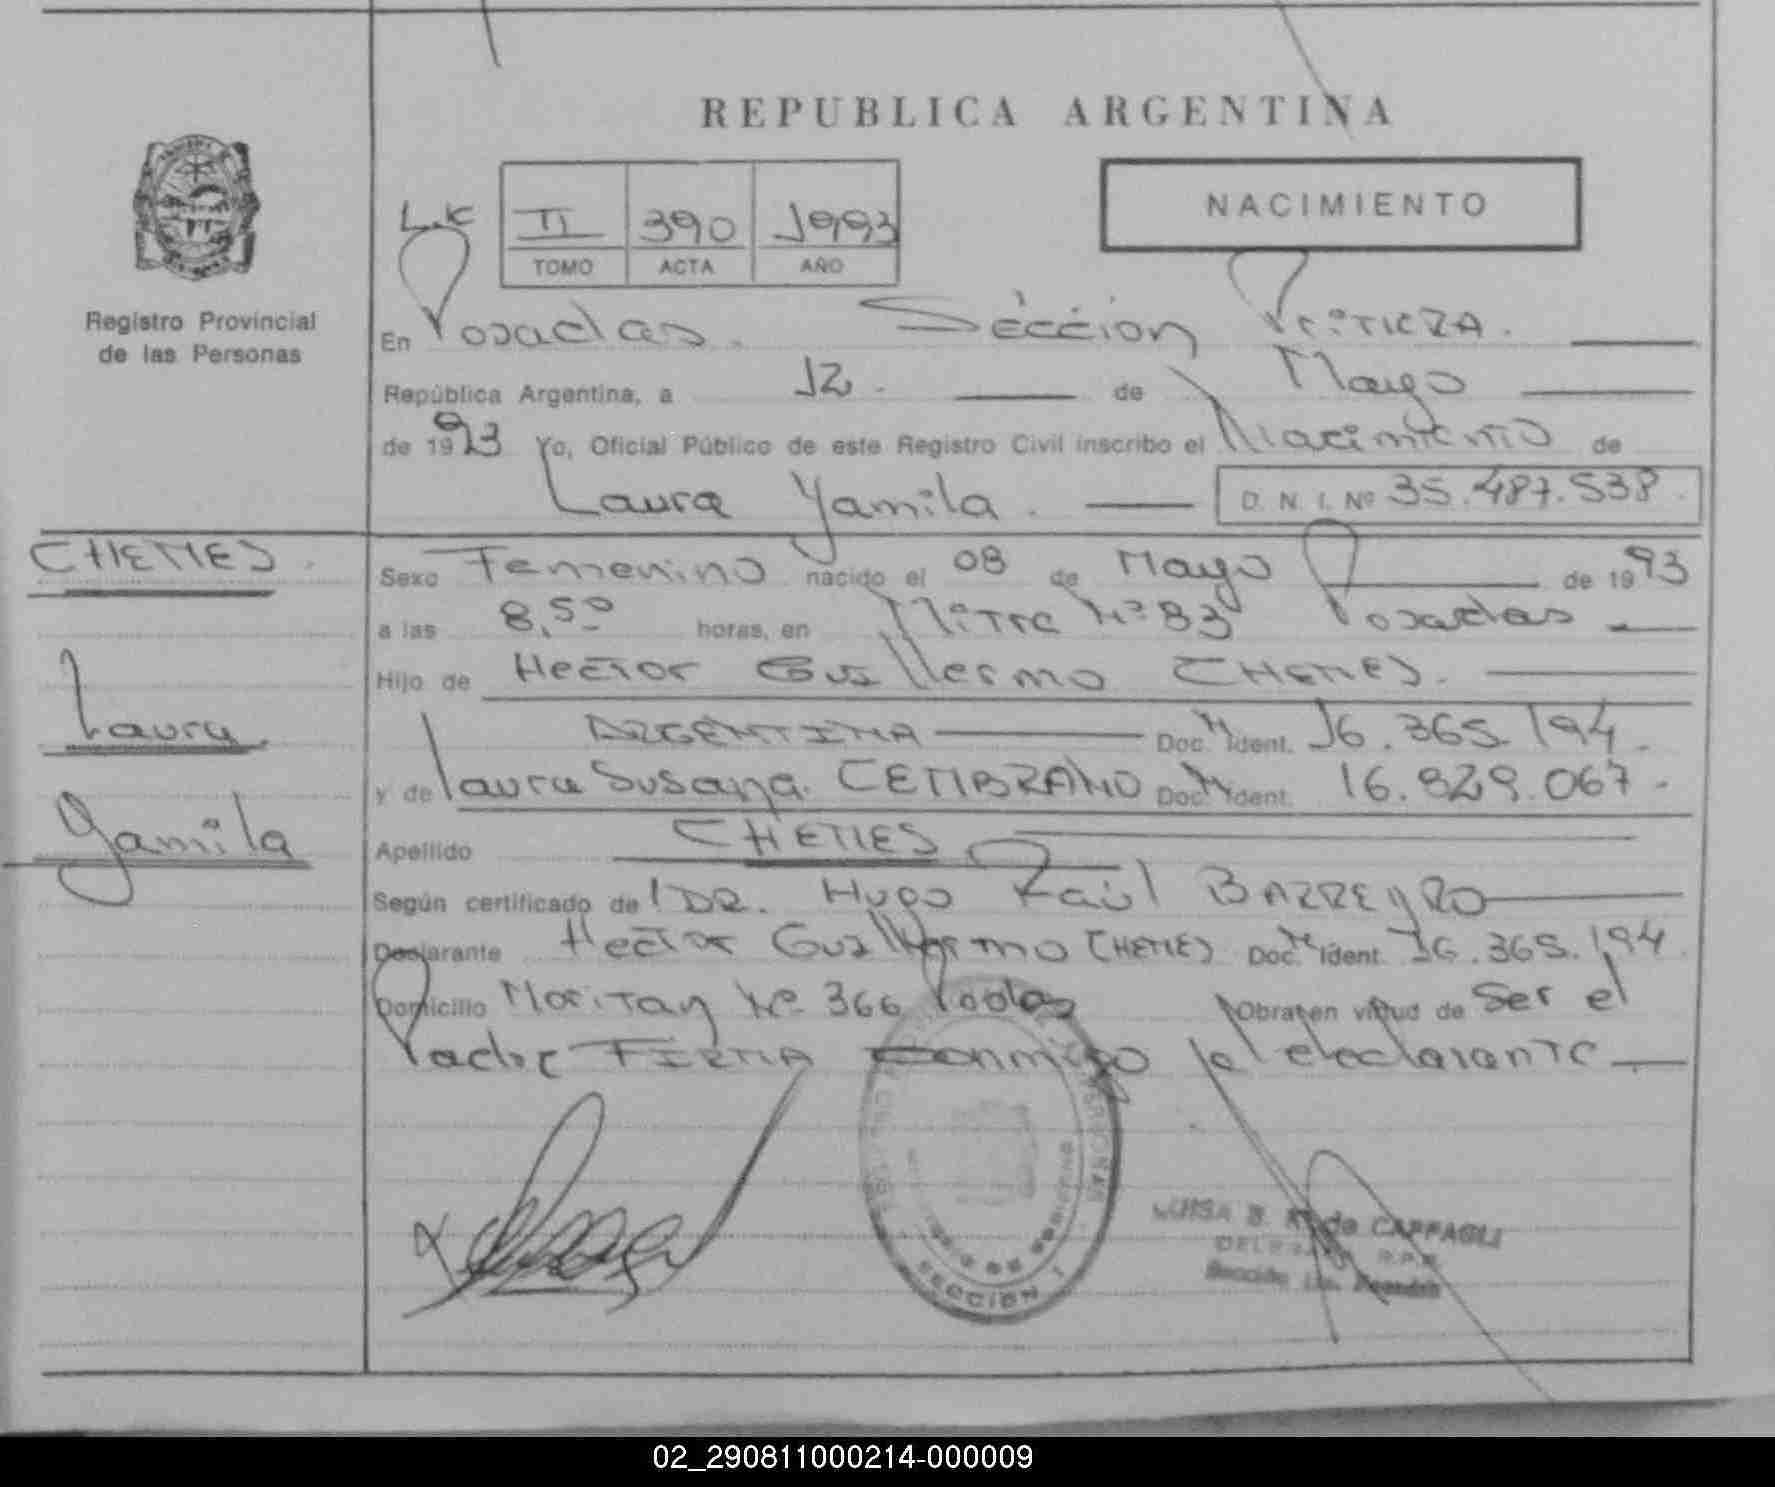 REPUBLICA ARGENTINA
NACIMIENTO
L.K II 390 1993
TOMO ACTA AÑO
Registro Provincial
de las Personas
En Posadas. Sección Primera.
República Argentina, a 12. de Mayo
de 1993 Yo, Oficial Público de este Registro Civil inscribo el Nacimiento de
Laura Yamila. D. N. I. Nº 35.487.538.
CHEMES.
Laura
Yamila
Sexo Femenino nacido el 08 de Mayo de 1993
a las 8,50 horas, en Mitre Nº 83 Posadas
Hijo de Hector Guillermo CHEMES.
ARGENTINA Doc. Ident. 16.365.194.
y de Laura Susana. CEMBRANO Doc. Ident. 16.829.067.
Apellido CHEMES
Según certificado de DR. Hugo Raúl BARREYRO
Declarante Hector Guillermo CHEMES Doc. Ident. 16.365.194
Domicilio Nº 366 Pdas Obra en virtud de Ser el
Padre FIRMA Conmigo el declarante
SECCION 1
LUISA B. de CAFFAGLI
02_290811000214-000009